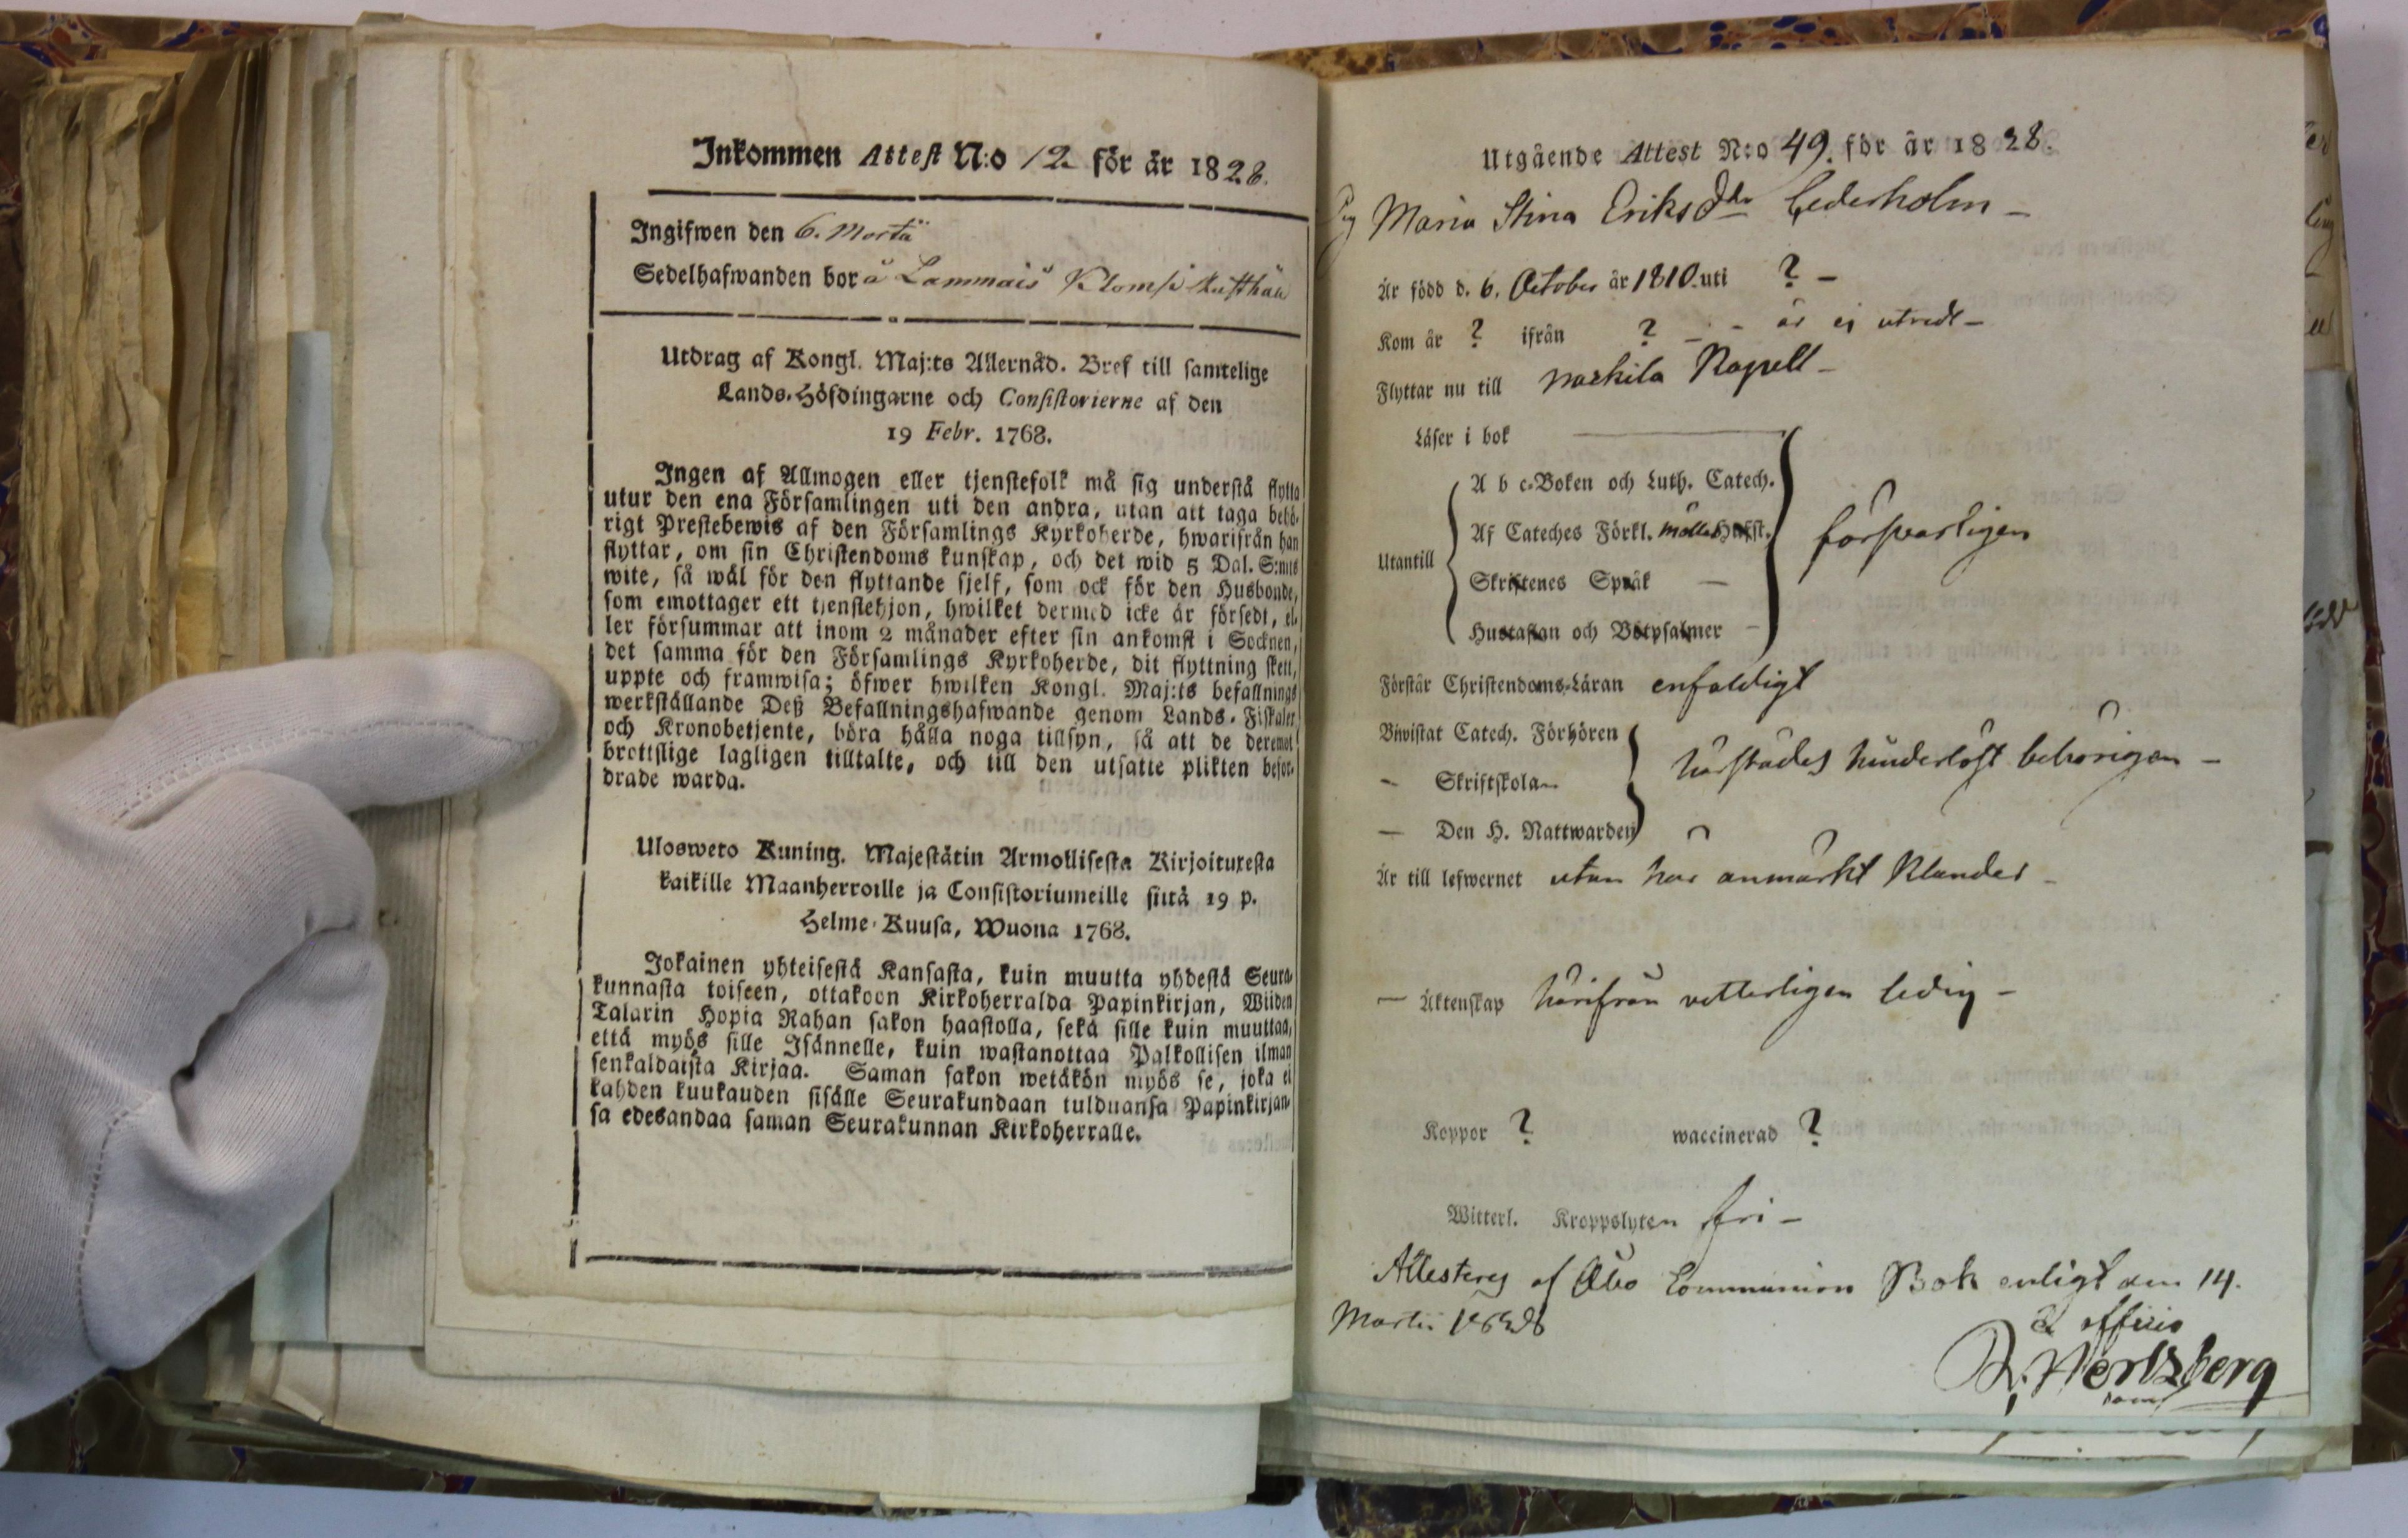 Inkommen Attest N:o 12 för år 1828.
Ingifwen den 6. Martii
Sedelhafwanden bor å Lammais Klompi
Utdrag af Kongl. Maj:ts Allernåd. Bref till samtelige
Lands-Höfdingarne och Consistorierne af den
19 Febr. 1768.
Ingen af Allmogen eller tjenstefolk må sig understå flytta
utur den ena Församlingen uti den andra, utan att taga behö-
rigt Prestebewis af den Församlings Kyrkoherde, hwarifrån han
flyttar, om sin Christendoms kunskap, och det wid 5 Dal. S:mts
wite, så wäl för den flyttande sjelf, som ock för den Husbonde,
som emottager ett tjenstehjon, hwilket dermed icke är försedt, el-
ler försummar att inom 2 månader efter sin ankomst i Socknen,
det samma för den Församlings Kyrkoherde, dit flyttning skett,
uppte och framwisa; öfwer hwilken Kongl. Maj:ts befallnings
werkställande Deß Befallningshafwande genom Lands-Fiskaler
och Kronobetjente, böra hålla noga tillsyn, så att de deremot
brottslige lagligen tilltalte, och till den utsatte plikten befor-
drade warda.
Uloswero Kuning. Majestätin Armollisesta Kirjoituxesta
kaikille Maanherroille ja Consistoriumeille siitä 19 p.
Helme-Kuusa, Wuona 1768.
Jokainen yhteisestä Kansasta, kuin muutta yhdestä Seura-
kunnasta toiseen, ottakoon Kirkoherralda Papinkirjan, Wiiden
Talarin Hopia Rahan sakon haastolla, sekä sille kuin muuttaa,
että myös sille Isännelle, kuin wastanottaa Palkollisen ilman
senkaldaista Kirjaa. Saman sakon wetäkön myös se, joka ei
kahden kuukauden sisälle Seurakundaan tulduansa Papinkirjan-
sa edesandaa saman Seurakunnan Kirkoherralle.
Utgående Attest N:o 49. för år 1828.
Pig Maria Stina Eriksdtr Cederholm –
Är född d. 6. October år 1810. uti ? –
Kom år ? ifrån ? – - är ej utredt –
Flyttar nu till Kapell –
Läser i bok
A b c-Boken och Luth. Catech.
Utantill
Af Cateches Förkl. Hufst.
Skriftenes Språk
Hustaflan och Botpsalmer
försvarligen
Förstår Christendoms-Läran enfaldigt
Biwistat Catech. Förhören
– Skriftskolan
– Den H. Nattwarden
härstädes hinderlöst behörigen –
Är till lefwernet utan här anmärkt klander –
– Äktenskap härifrån vetterligen ledig –
Koppor ? waccinerad ?
Witterl. Kroppslyten fri –
Attesteras af Åbo Communion Bok enligt den 14.
Martii 1828
ex officio
Hertzberg